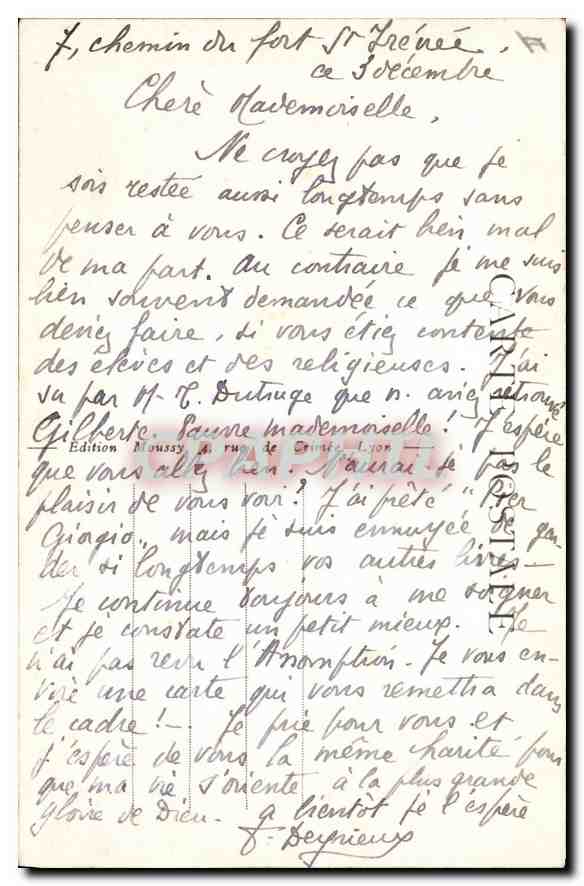 7, chemin du fort St Irénée,
ce 3 décembre
Chère Mademoiselle,
Ne croyez pas que je
sois restée aussi longtemps sans
penser à vous. Ce serait bien mal
de ma part. Au contraire je me suis
bien souvent demandée ce que vous
deviez faire, si vous étiez contente
des élèves et des religieuses. J'ai
su par M-T. Dutruge que v. aviez retrouvé
Gilberte. Pauvre mademoiselle! J'espère
Edition Moussy 4, rue de Crimée Lyon
que vous allez bien. N'aurai je pas le
plaisir de vous voir? J'ai prêté "Pier
Giorgio" mais je suis ennuyée de gar-
der si longtemps vos autres livres -
Je continue toujours à me soigner
et je constate un petit mieux. Je
n'ai pas revu l'Assomption. Je vous en-
voie une carte qui vous remettra dans
le cadre! -. Je prie pour vous et
j'espère de vous la même charité pour
que ma vie s'oriente à la plus grande
gloire de Dieu. - à bientôt je l'espère
Deyrieux
CARTE POSTALE